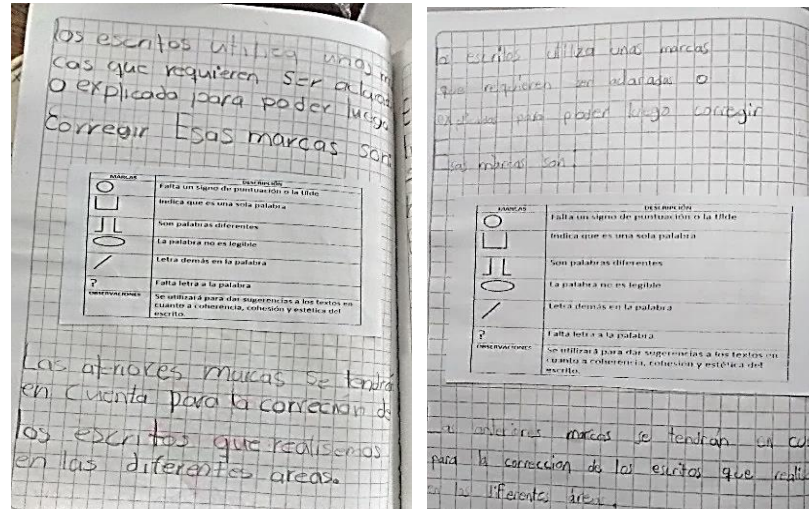 los escritos utiliza unas m
cas que requieren ser aclarad
o explicado para poder luego
corregir Esas marcas son
MARCAS DESCRIPCIÓN
Falta un signo de puntuación o la tilde
Indica que es una sola palabra
Son palabras diferentes
La palabra no es legible
Letra demás en la palabra
? Falta letra a la palabra
OBSERVACIONES Se utilizará para dar sugerencias a los textos en
cuanto a coherencia, cohesión y estética del
escrito.
Las marcas se tendrá
en cuenta para la correción d
los escritos que realisemos
en las diferentes areas.
escritos utiliza unas marcas
que requieren ser aclaradas o
para poder luego corregir
marcas son
MARCAS DESCRIPCIÓN
Falta un signo de puntuación o la tilde
Indica que es una sola palabra
Son palabras diferentes
La palabra no es legible
Letra demás en la palabra
? Falta letra a la palabra
OBSERVACIONES Se utilizará para dar sugerencias a los textos en
cuanto a coherencia, cohesión y estética del
escrito.
anteriores marcas se tendrán en cu
para la correccion de los escritos que reali